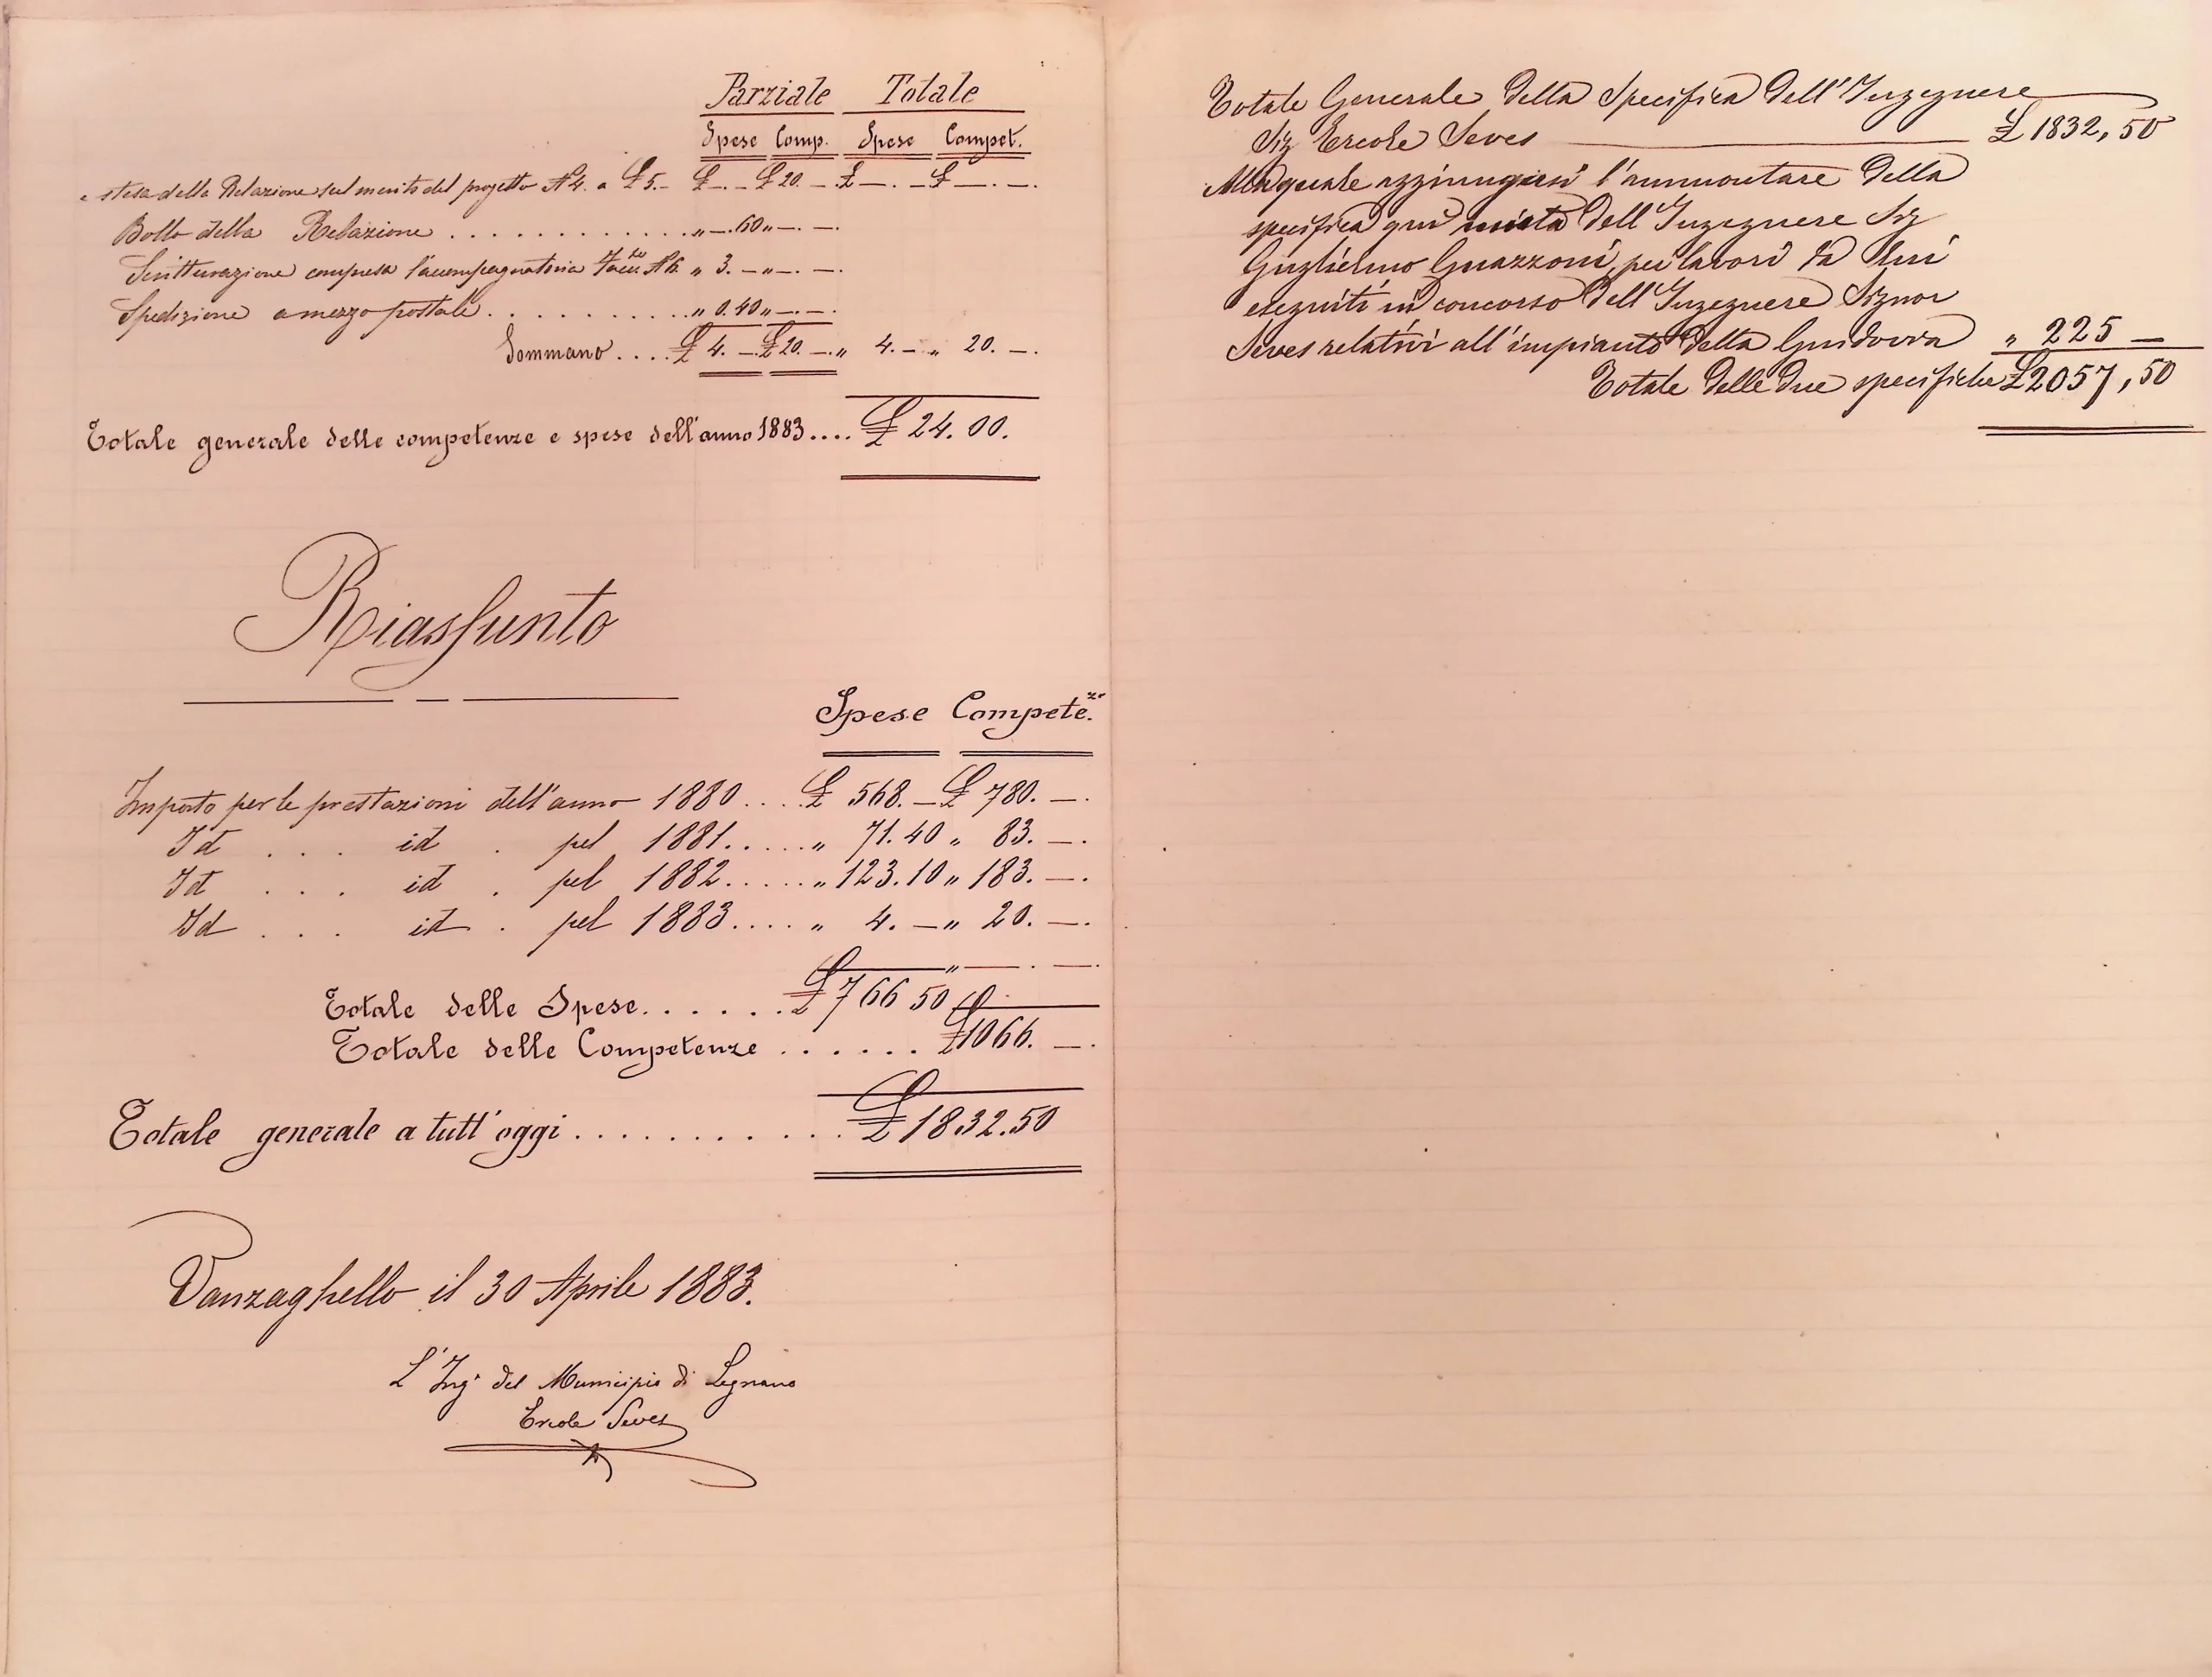 Parziale Totale
Spese Comp. Spese Compet.
e stesa della Relazione sul merito del progetto N. 4. a £ 5.- £ —. — £ 20. —. £ —. — £ —. —.
Bollo della Relazione . . . . . . . . . . . . . „ —. 60 „ —. —.
Scritturazione compresa l'accompagnatoria N. 6. „ 3. — „ —. —.
Spedizione a mezzo postale . . . . . . . . . . „ 0.40 „ —. —.
Sommano . . . . £ 4. —. £ 20. —. „ 4. — „ 20. —.
Totale generale delle competenze e spese dell'anno 1883 . . . . £ 24.00.
Riassunto
Spese Compete.ze
Importo per le prestazioni dell'anno 1880 . . . . £ 568. — £ 780. —.
Id . . . id . pel 1881. . . . . „ 71.40 „ 83. —.
Id . . . id . pel 1882. . . . . „ 123.10 „ 183. —.
Id . . . id . pel 1883. . . . „ 4. — „ 20. —.
„ — . —.
Totale delle Spese. . . . . . . £ 766 50
Totale delle Competenze . . . . . . £ 1066. —.
Totale generale a tutt'oggi . . . . . . . . . . . . £ 1832.50
Vanzaghello il 30 Aprile 1883.
L'Ing.e del Municipio di Legnano
Ercole Seves
Totale Generale della Specifica dell'Ingegnere
Sig Ercole Seves — £ 1832,50
Alla quale aggiungersi l'ammontare della
specifica qui unita dell'Ingegnere Sig
Guglielmo Guazzoni, per lavori da lui
eseguiti in concorso dell'Ingegnere Signor
Seves relativi all'impianto della Guidovia „ 225 —
Totale delle due specifiche £ 2057,50